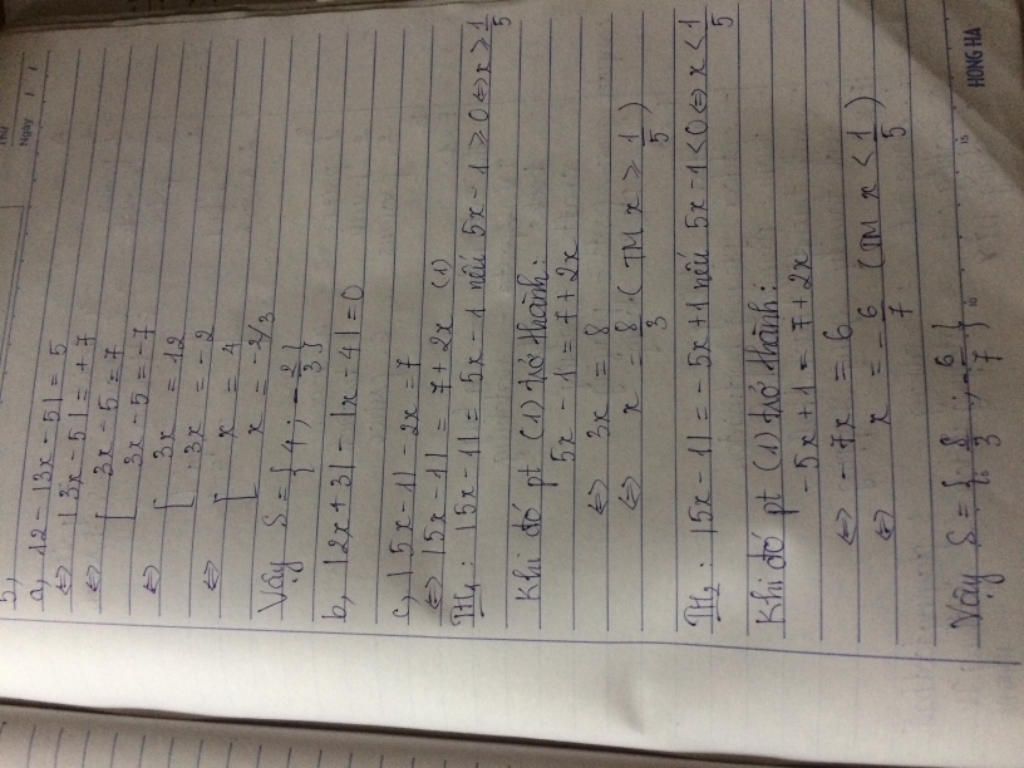 Thứ
Ngày / /
5,
a, 12 - |3x - 5| = 5
⇔ |3x - 5| = +7
⇔ [ 3x - 5 = 7
3x - 5 = -7
⇔ [ 3x = 12
3x = -2
⇔ [ x = 4
x = -2/3
Vậy S = { 4 ; -2/3 }
b, |2x + 3| - |x - 4| = 0
c, |5x - 1| - 2x = 7
⇔ |5x - 1| = 7 + 2x (1)
TH1 : |5x - 1| = 5x - 1 nếu 5x - 1 ≥ 0 ⇔ x ≥ 1/5
Khi đó pt (1) trở thành:
5x - 1 = 7 + 2x
⇔ 3x = 8
⇔ x = 8/3 (TM x ≥ 1/5)
TH2 : |5x - 1| = -5x + 1 nếu 5x - 1 < 0 ⇔ x < 1/5
Khi đó pt (1) trở thành:
-5x + 1 = 7 + 2x
⇔ -7x = 6
⇔ x = -6/7 (TM x < 1/5)
Vậy S = { 8/3 ; -6/7 }
10 15
HONG HA